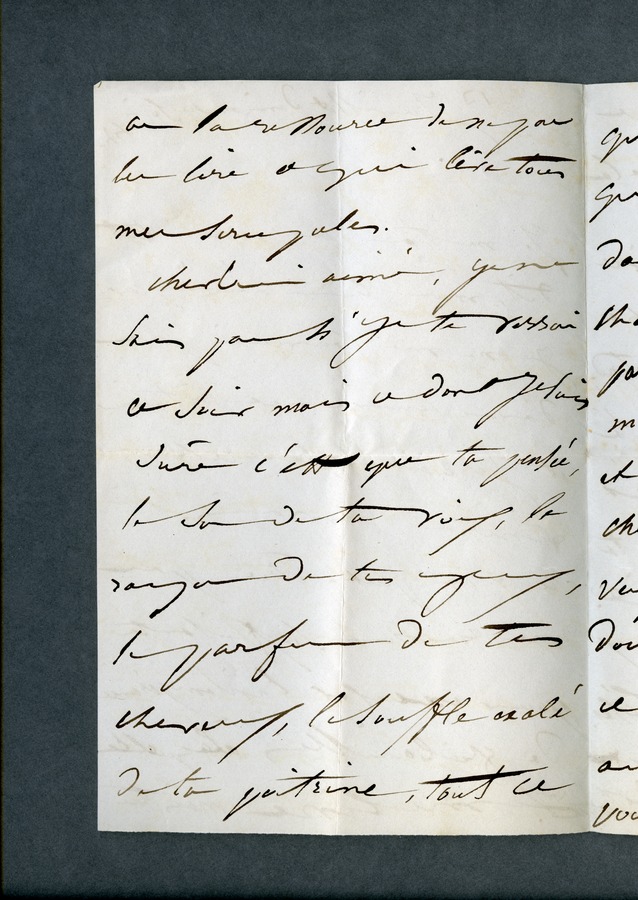 as la ressource de ne pas
les lire ce qui lève tous
mes scrupules.
Cher bien aimé, je ne
sais pas si je te verrai
ce soir mais ce dont je suis
sûre c'est que ta pensée,
le son de ta voix, le
rayon de tes yeux,
le parfum de tes
cheveux, le souffle exalé
de ta poitrine, tout ce